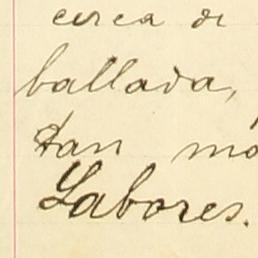 cerca di
ballada,
tan mo
Labores.